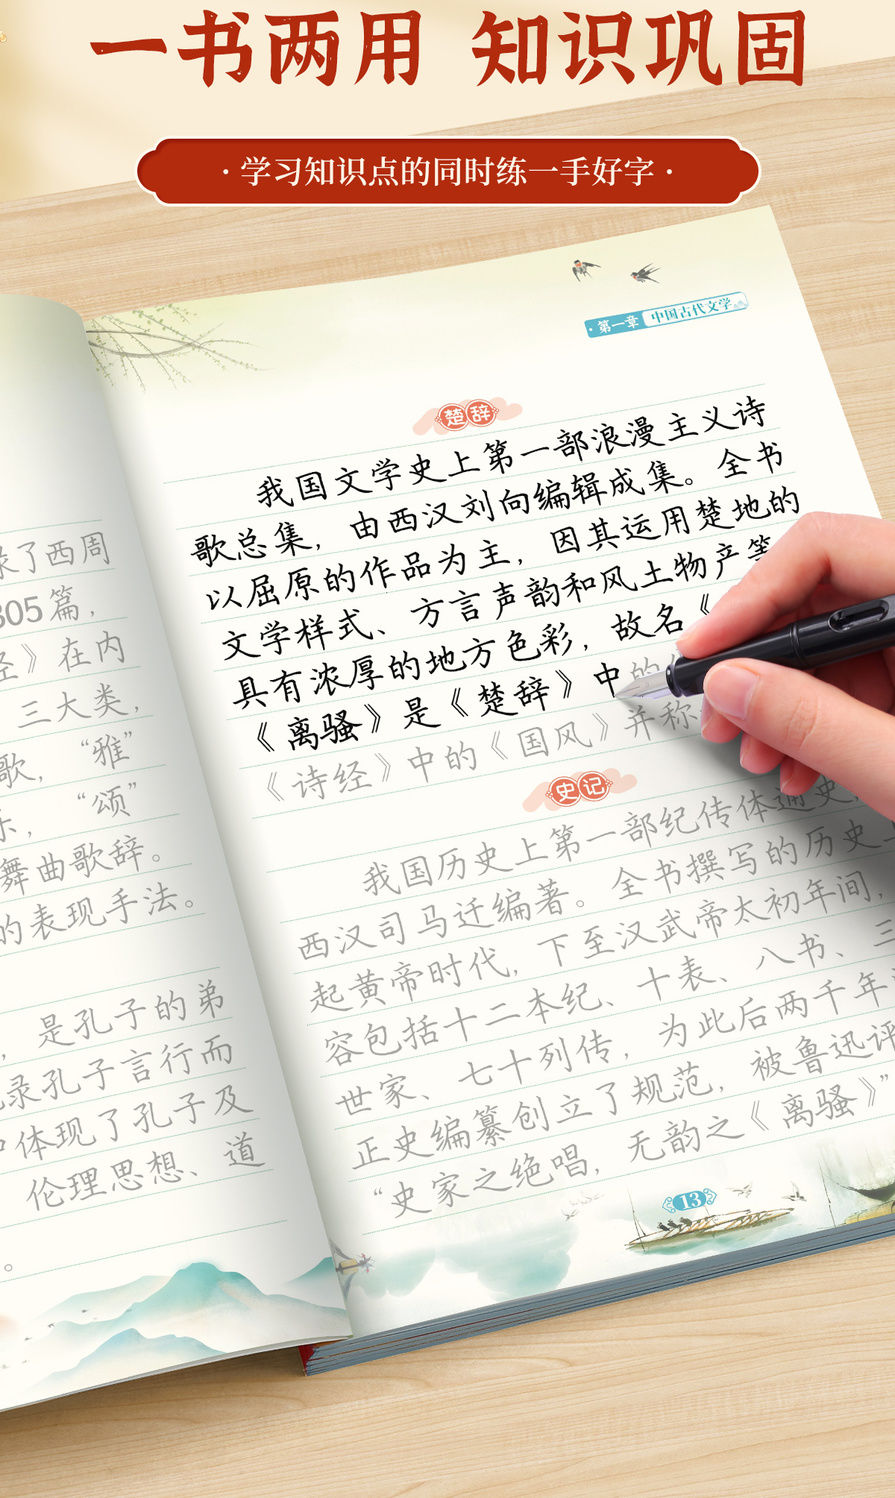 一书两用 知识巩固
·学习知识点的同时练一手好字·
录了西周
305篇，
经》在内
三大类，
歌，“雅”
乐，“颂”
舞曲歌辞。
的表现手法。
，是孔子的弟
录孔子言行而
中体现了孔子及
伦理思想、道
。
·第一章 中国古代文学
楚辞
我国文学史上第一部浪漫主义诗
歌总集，由西汉刘向编辑成集。全书
以屈原的作品为主，因其运用楚地的
文学样式、方言声韵和风土物产等，
具有浓厚的地方色彩，故名《
《离骚》是《楚辞》中的
《诗经》中的《国风》并称
史记
我国历史上第一部纪传体通史，
西汉司马迁编著。全书撰写的历史上
起黄帝时代，下至汉武帝太初年间，
容包括十二本纪、十表、八书、三
世家、七十列传，为此后两千年
正史编纂创立了规范，被鲁迅评
“史家之绝唱，无韵之《离骚》”
13